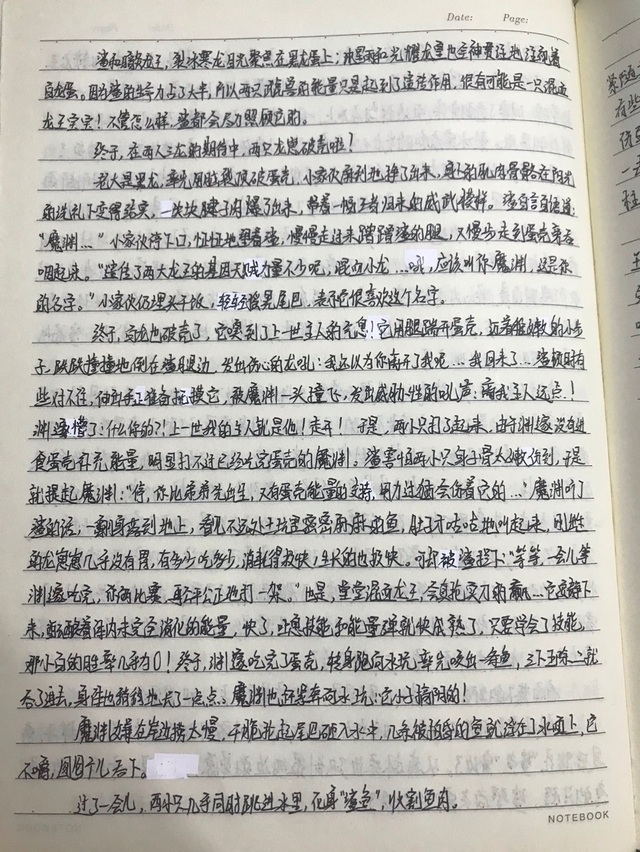 Date: Page:
鲨和暗影龙王,裂冰寒龙目光聚焦在黑龙蛋上;冰里雨和光耀龙皇也全神贯注地注视着
白龙蛋。因为鲨的生命力占了大半,所以两只的能量只是起到了遗传作用,很有可能是一只混血
龙王宝宝!不管怎么样,鲨都会尽力照顾它的。
终于,在两人三龙的期待中,两只龙崽破壳啦!
老大是黑龙,率先用破蛋壳,小家伙麻利地挣了出来,身上的肌肉骨骼在阳光
的洗礼下变得结实,一块块腱子肉爆了出来,带着一幅王者归来的威武模样。鲨自言自语道:
“魔渊…”小家伙停下口,怔怔地望着鲨,慢慢走过来蹭蹭鲨的腿,又慢步走到蛋壳旁吞
咽起来。“继任了两大龙王的基因天赋力量不少呢,混血小龙…哦,应该叫你魔渊,这是你
的名字。”小家伙仍埋头干饭,轻轻摇晃尾巴,表示它很喜欢这个名字。
终于,白龙也破壳了,它嗅到了上一世主人的气息!它用腿踹开蛋壳,迈着稚嫩的小步
子,跌跌撞撞地倒在鲨腿边,发出伤心的龙吼:我还以为你离开了我呢…我回来了…鲨顿时有
些对不住,伸出手正准备抚摸它,被魔渊一头撞飞,发出威胁性的吼声:离我主人远点!
渊缘懵了:什么你的?!上一世我的主人就是他!走开!于是,两小只打了起来,由于渊缘没有进
食蛋壳补充能量,明显打不过已经吃完蛋壳的魔渊。鲨害怕两小只身子骨太嫩伤到,于是
就抱起魔渊:“停,你比弟弟先出生,又有蛋壳能量的支持,用力过猛会伤着它的…”魔渊听了
鲨的话,一翻身落到地上,看见不远处土坑里密密麻麻的鱼,肚子才咕咕地叫起来,刚出生
的龙崽崽几乎没有胃,有多少吃多少,消耗得极快,生长的也极快。可却被鲨拦下:“等等,一会儿等
渊缘吃完,你俩比赛,再公平公正地打一架。”也是,堂堂混血龙王,会身抢灾刀的赢…它安静下
来,酝酿着体内未完全消化的能量,快了,吐息技能和能量弹就快成熟了,只要学会了技能,
那小白的胜率几乎为0!终于,渊缘吃完了蛋壳,转身跑向水坑率先吸出一条鱼,三下五除二就
吞了进去,身体也稍稍地大了一点点。魔渊也赶紧奔向水坑:这小子搞阴的!
魔渊觉得在岸边捞太慢,干脆抡起尾巴砸入水中,几条被拍晕的鱼就浮在了水面上,它
不嚼,囫囵个儿吞下。
过了一会儿,两小只几乎同时跳进水里,化身“鲨鱼”,收割鱼肉。
NOTEBOOK